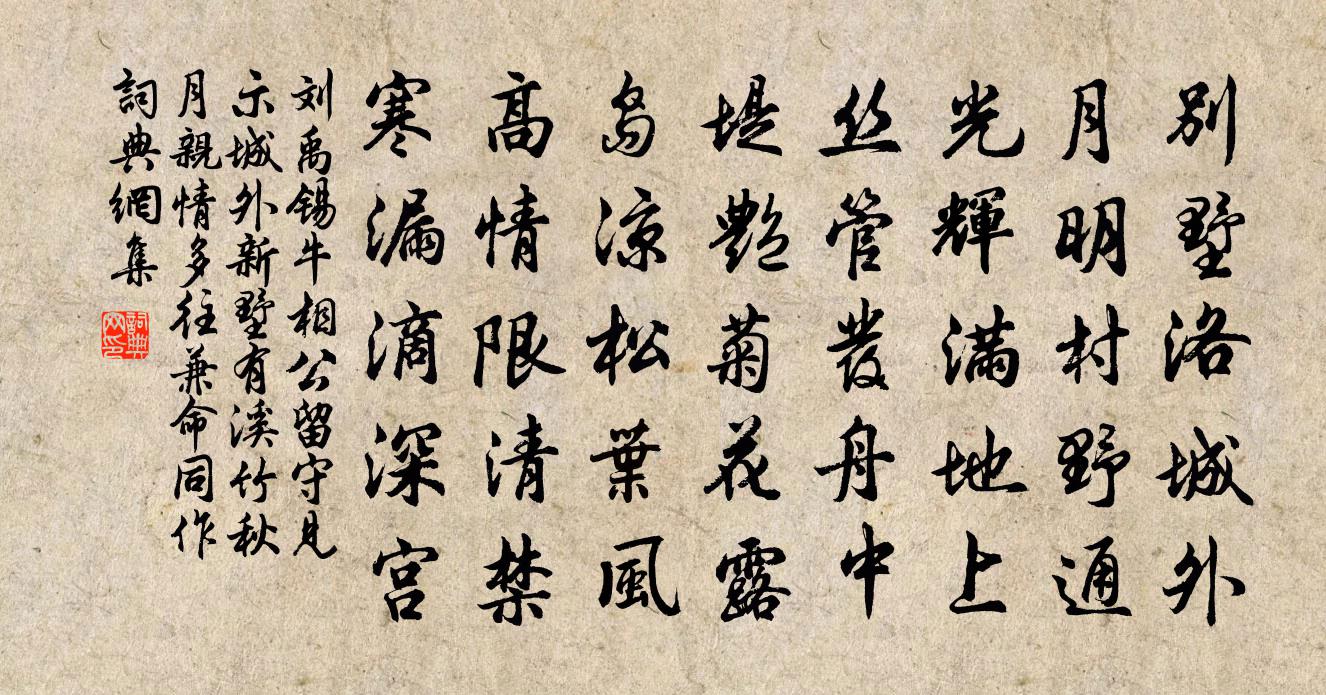 別墅洛城外
月明村野通
光輝滿地上
丝管發舟中
堤艷菊花露
岛凉松葉風
高情限清禁
寒漏滴深宫
刘禹锡牛相公留守見
示城外新墅有溪竹秋
月親情多往兼命同作
詞典網集
詞典
网印